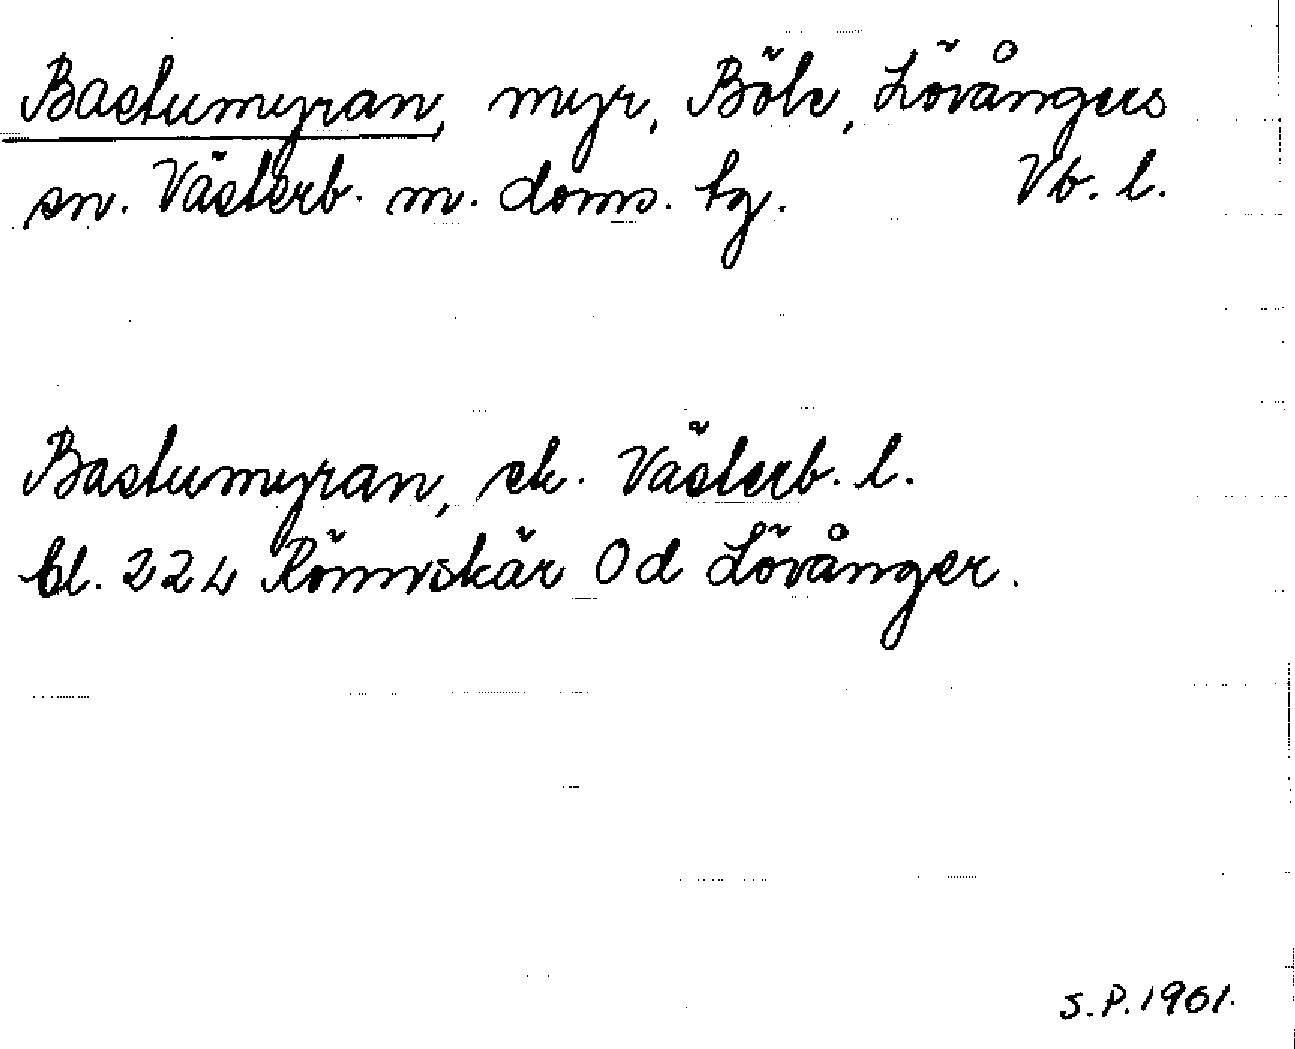 Bastumyran, myr, Böle, Lövångers
sn. Västerb. m. doms. tg. Vb. l.
Bastumyran, ek. Västerb. l.
bl. 224 Rönnskär Od Lövånger.
S.P. 1961.